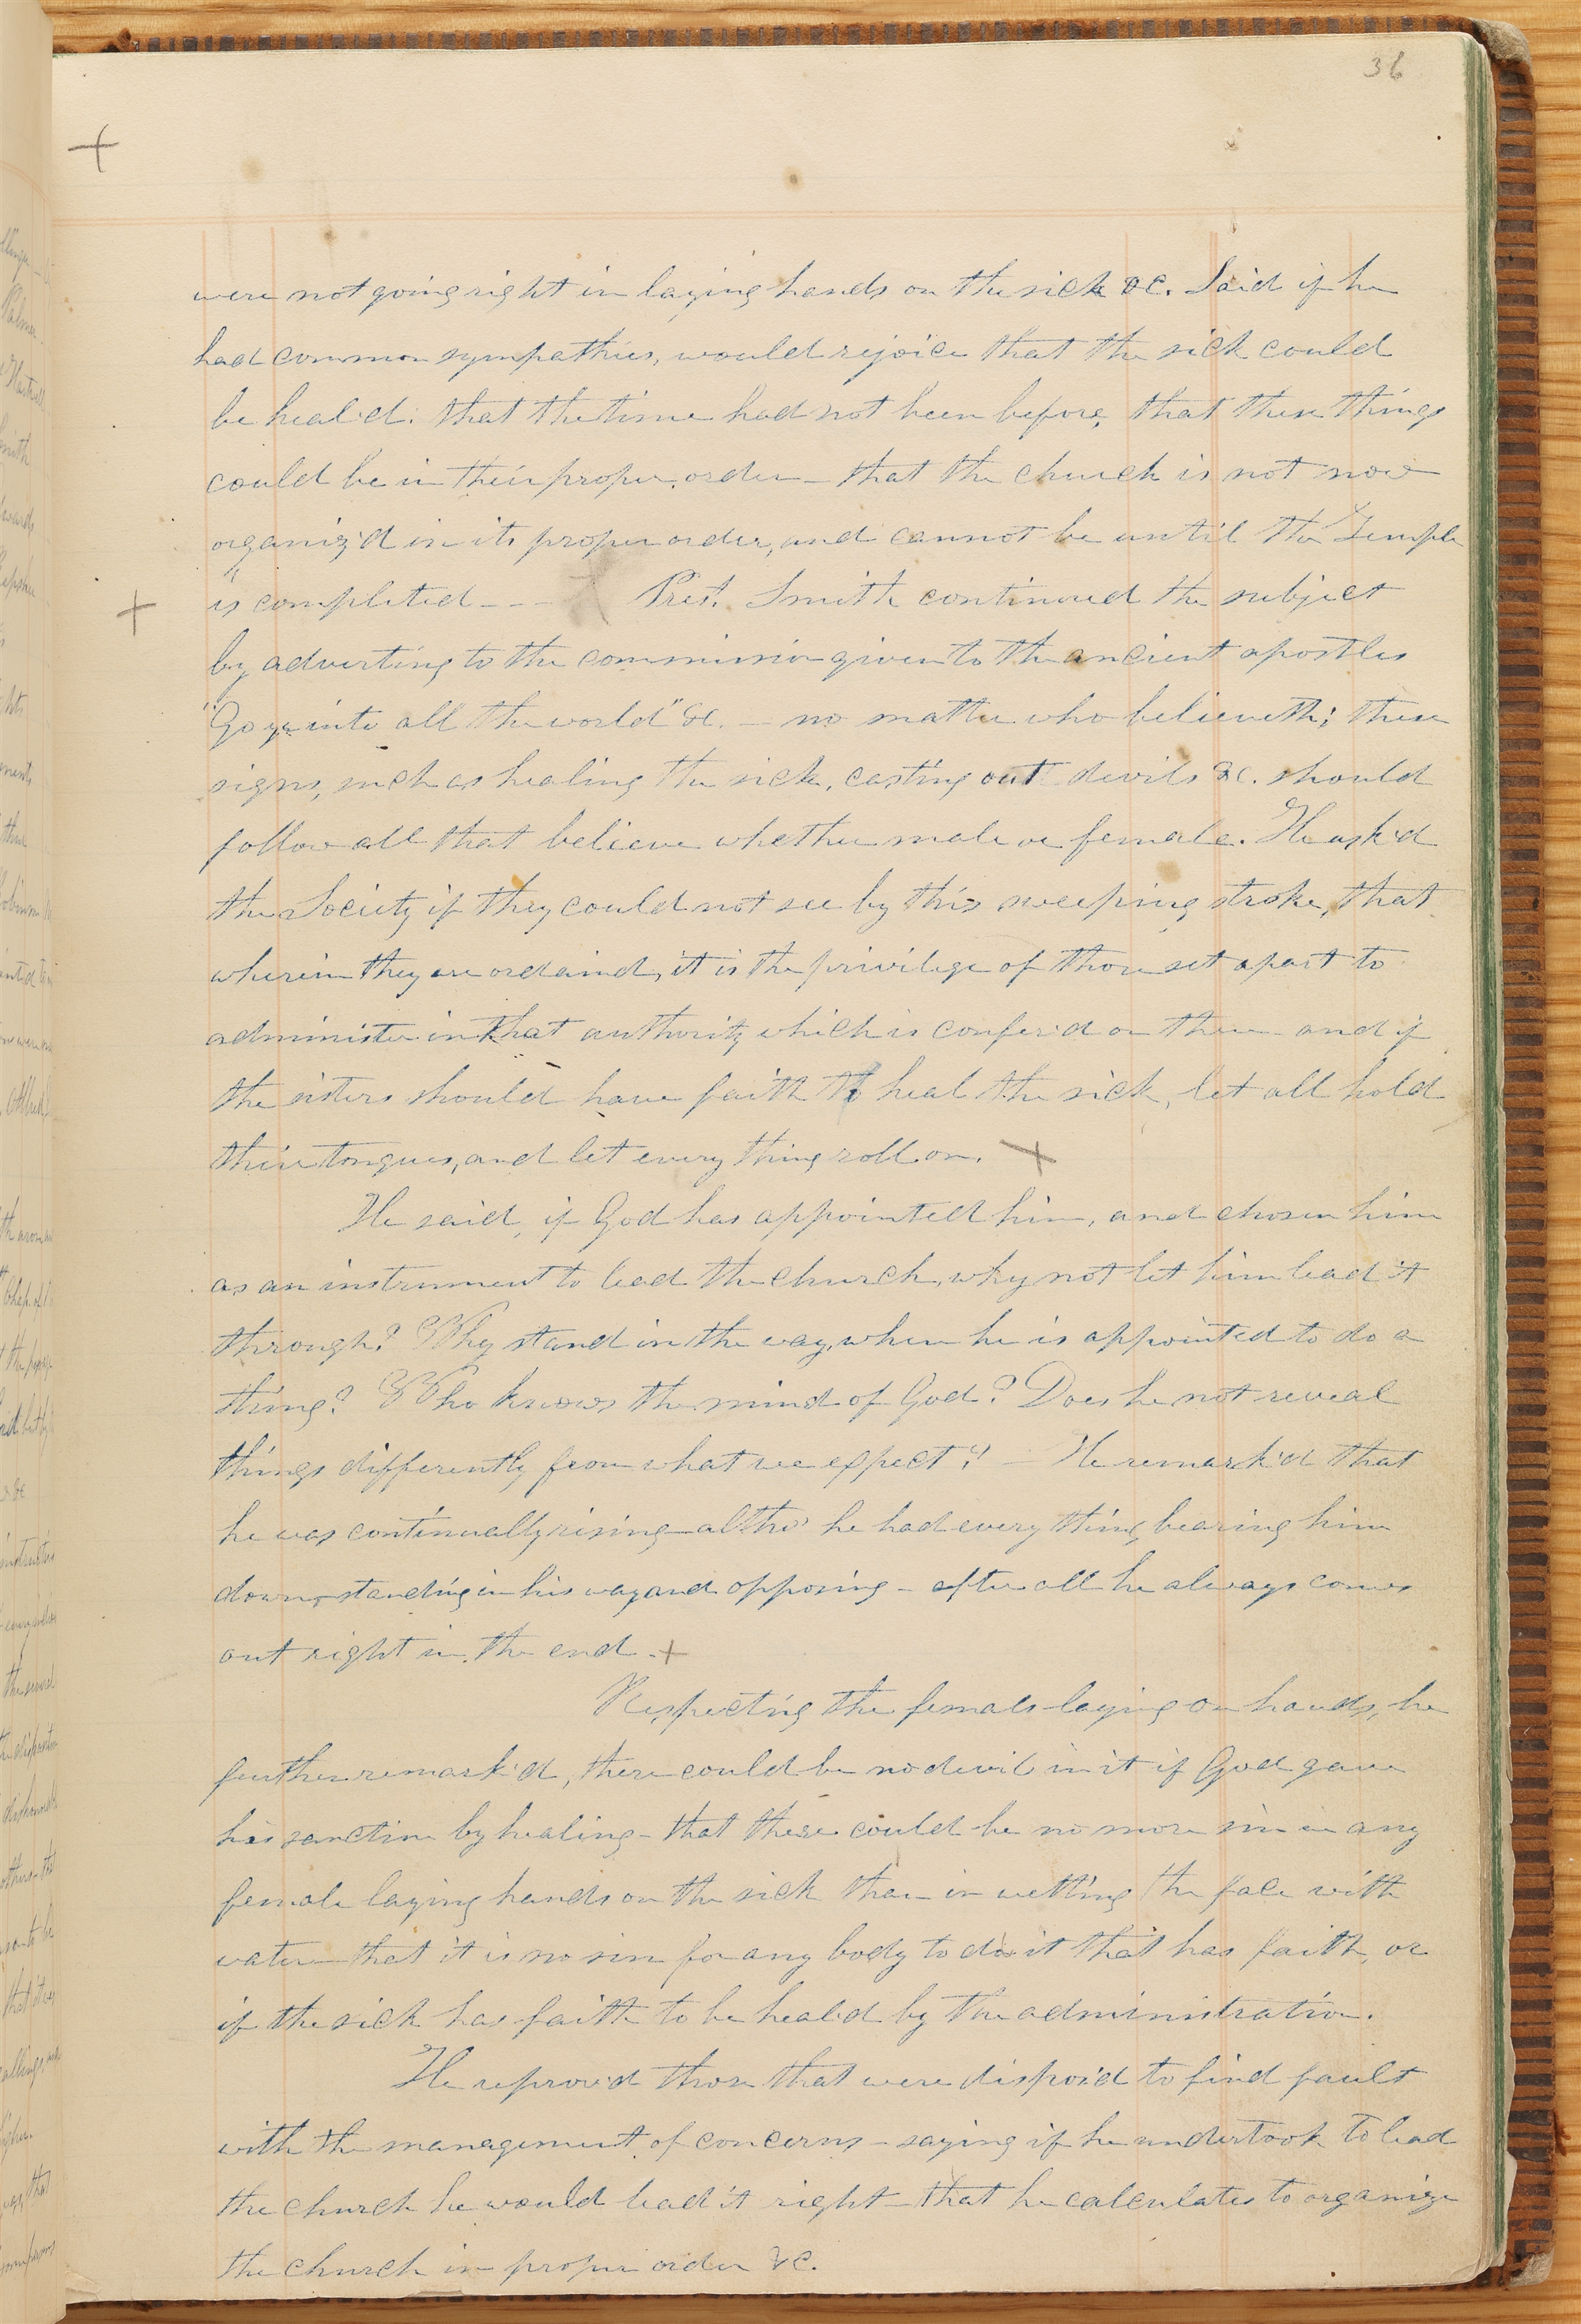 36
were not going right in laying hands on the sick &c. Said if he
had common sympathies, would rejoice that the sick could
be heal'd: that the time had not been before, that these things
could be in their proper order — that the church is not now
organiz'd in its proper order, and cannot be until the Temple
is completed - - - Prest. Smith continued the subject
by adverting to the commission given to the ancient apostles
"Go ye into all the world" &c. — no matter who believeth; these
signs, such as healing the sick, casting out devils &c. should
follow all that believe whether male or female. He ask'd
the Society if they could not see by this sweeping stroke, that
wherein they are ordaind, it is the privilege of those set apart to
administer in that authority which is confer'd on them — and if
the sisters should have faith to heal the sick, let all hold
their tongues, and let every thing roll on.
He said, if God has appointed him, and chosen him
as an instrument to lead the church, why not let him lead it
through? Why stand in the way, when he is appointed to do a
thing? Who knows the mind of God? Does he not reveal
things differently from what we expect? — He remark'd that
he was continually rising — altho' he had every thing bearing him
down, standing in his way and opposing — after all he always comes
out right in the end.
Respecting the female laying on hands, he
further remark'd, there could be no devil in it if God gave
his sanction by healing — that there could be no more sin in any
female laying hands on the sick than in wetting the face with
water — that it is no sin for any body to do it that has faith, or
if the sick has faith to be heal'd by the administration.
He reprov'd those that were dispos'd to find fault
with the management of concerns — saying if he undertook to lead
the church he would lead it right — that he calculates to organize
the church in proper order &c.